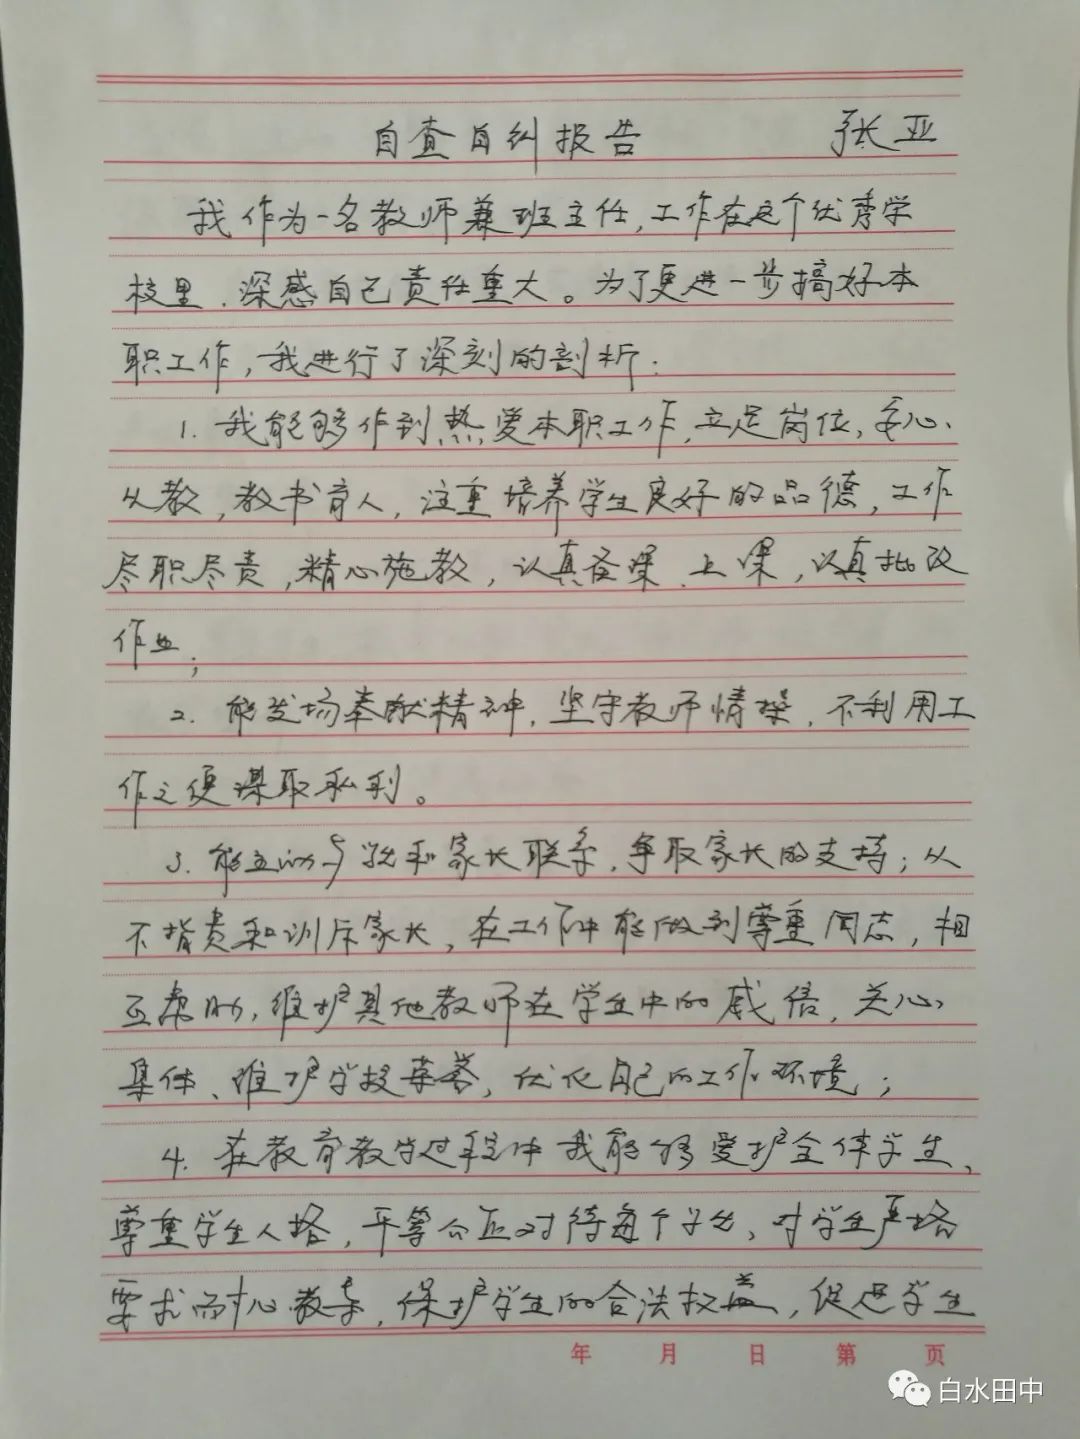 自查自纠报告 张亚
我作为一名教师兼班主任,工作在这个优秀学
校里、深感自己责任重大。为了更进一步搞好本
职工作,我进行了深刻的剖析:
1. 我能够作到热爱本职工作,立足岗位,安心
从教,教书育人,注重培养学生良好的品德,工作
尽职尽责,精心施教,认真备课、上课,认真批改
作业;
2. 能发扬奉献精神,坚守教师情操,不利用工
作之便谋取私利。
3. 能主动与学生和家长联系,争取家长的支持;从
不指责和训斥家长,在工作中能做到尊重同志,相
互帮助,维护其他教师在学生中的威信,关心
集体、维护学校荣誉,优化自己的工作环境;
4. 在教育教学过程中我能够爱护全体学生、
尊重学生人格,平等公正对待每个学生、对学生严格
要求而耐心教导,保护学生的合法权益,促进学生
年 月 日 第 页
白水田中